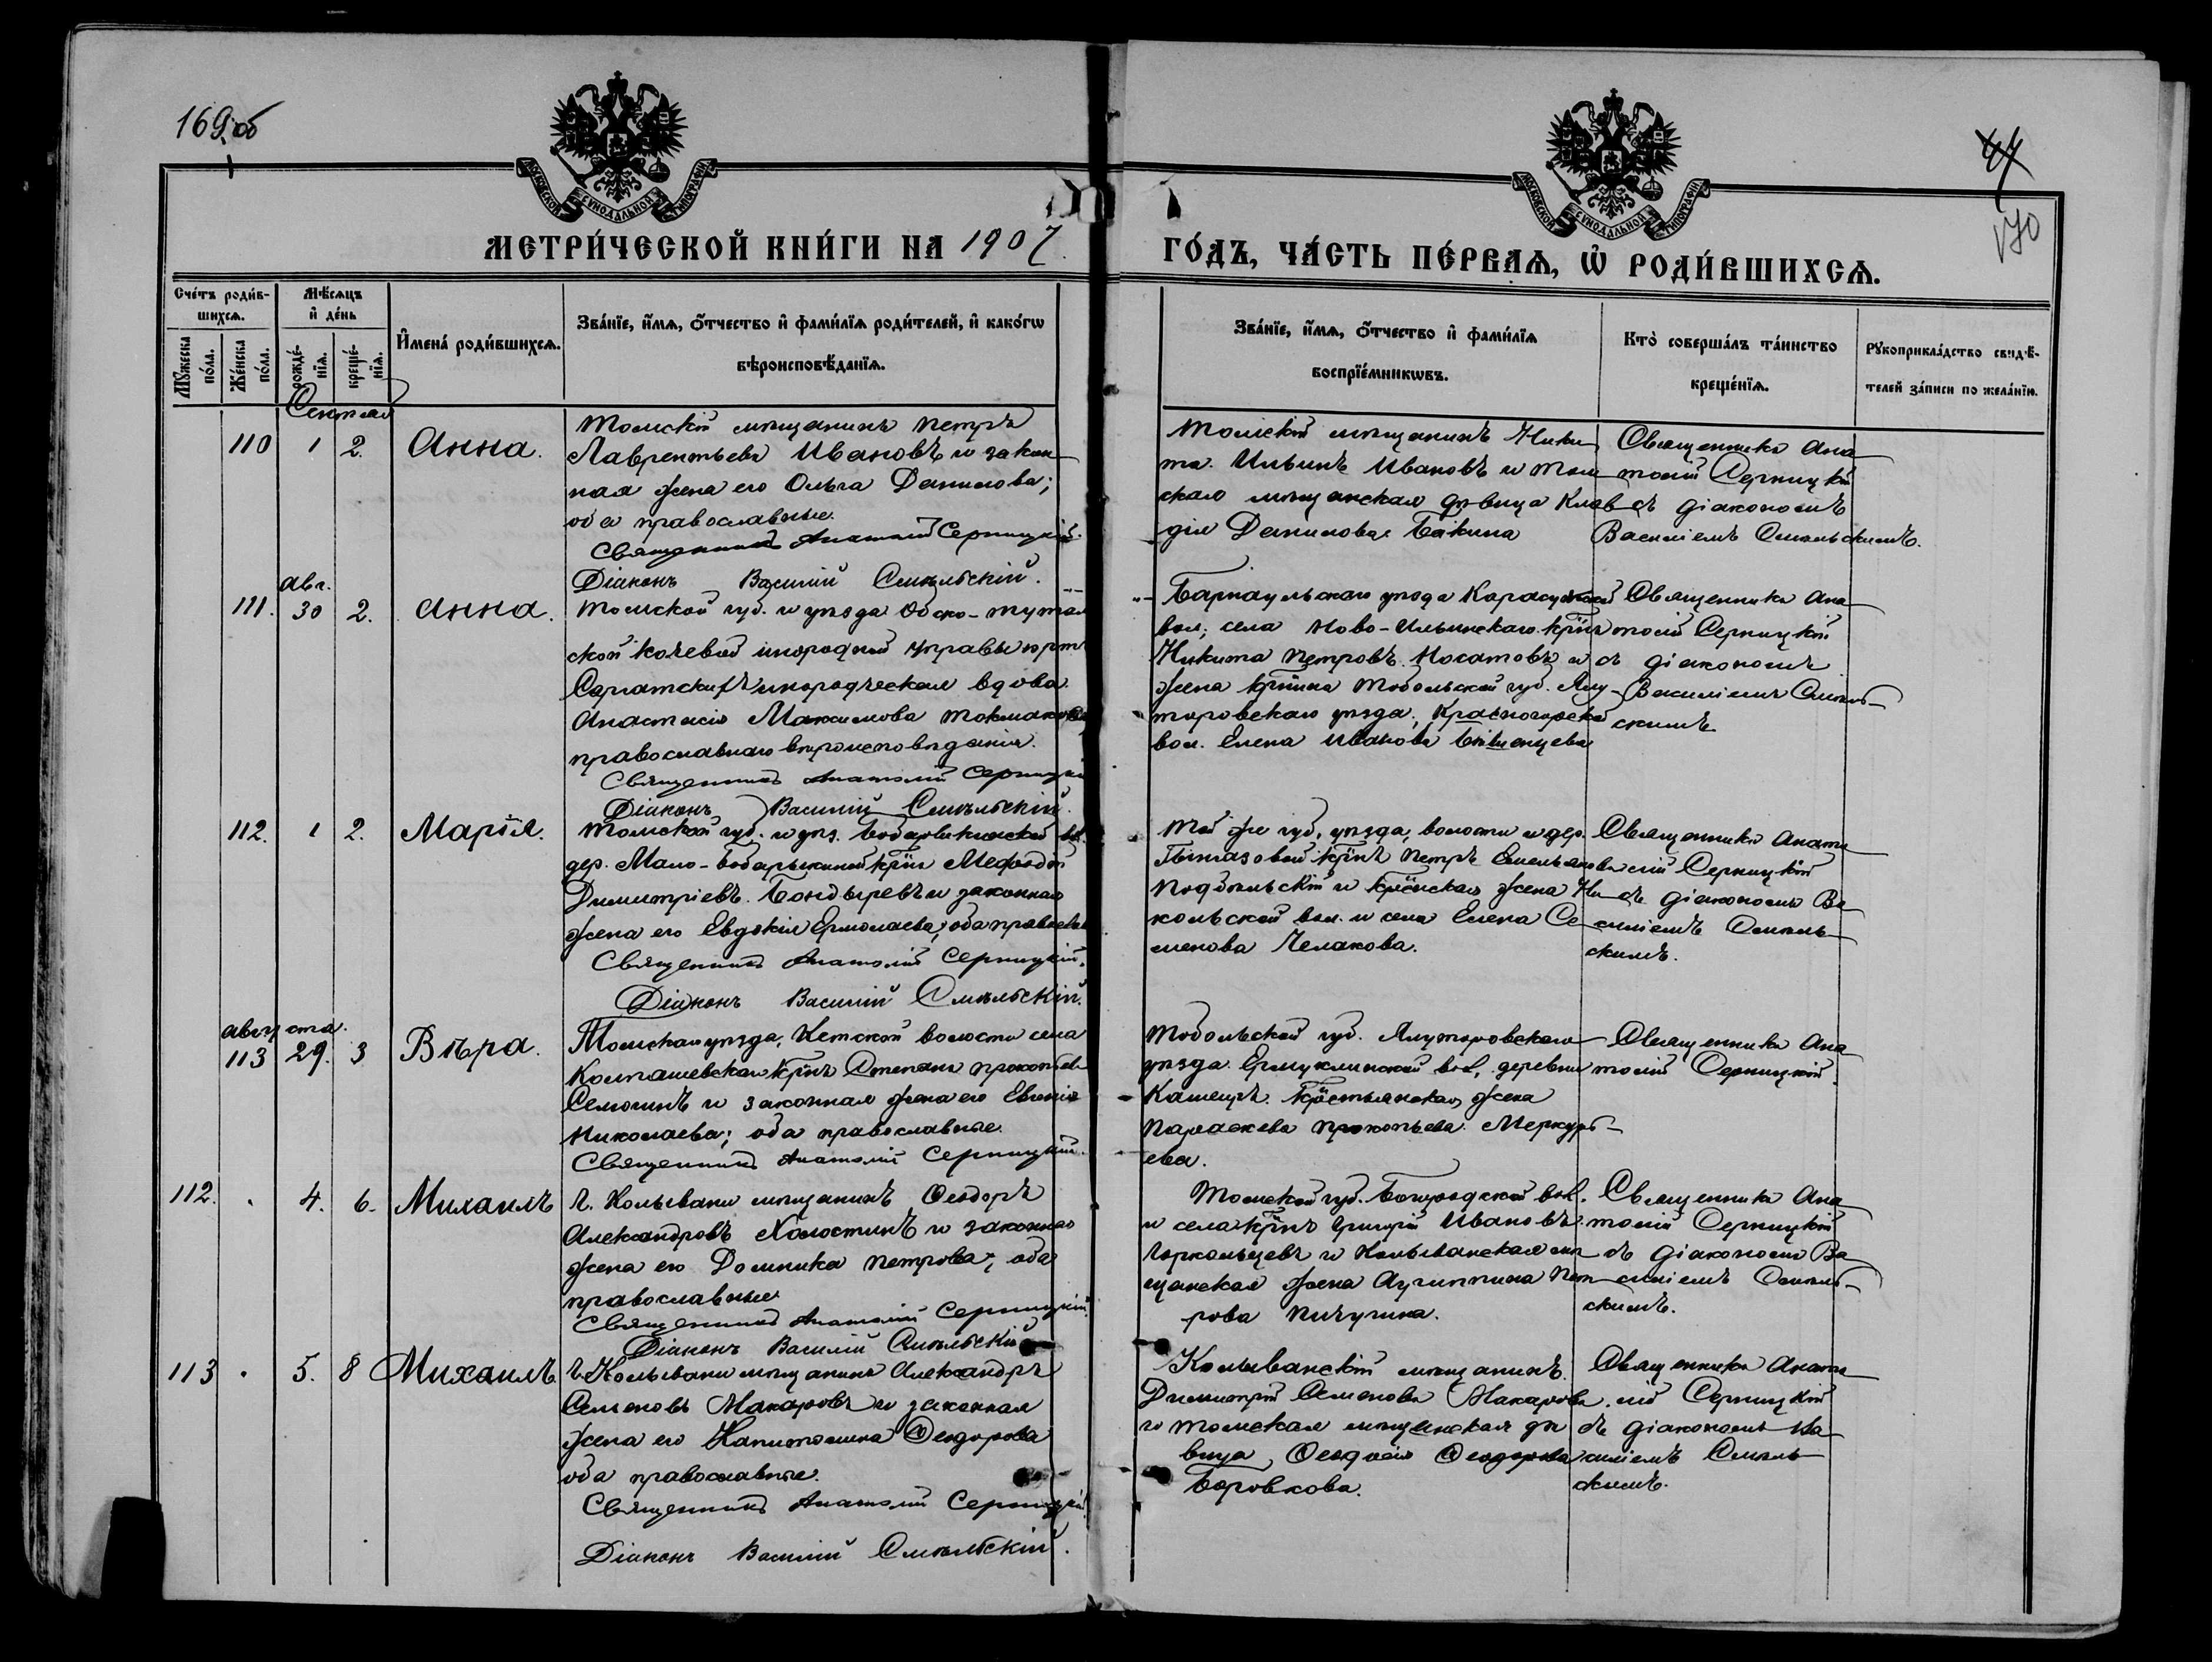 169 об
44
170
МОСКОВСКОЙ СѴНОДАЛЬНОЙ ТИПОГРАФІИ
МОСКОВСКОЙ СѴНОДАЛЬНОЙ ТИПОГРАФІИ
МЕТРИ́ЧЕСКОЙ КНИ́ГИ НА 1907
ГО́ДЪ, ЧА́СТЬ ПЕ́РВАѦ, Ѡ҆ РОДИ́ВШИХСѦ.
Сче́тъ роди́в-
шихсѧ.
Мѣ́сѧцъ
и҆ де́нь
И҆мена̀ роди́вшихсѧ.
Зва́нїе, и҆́мѧ, ѻ҆́тчество и҆ фами́лїѧ роди́телей, и҆ како́гѡ
вѣроисповѣ́данїѧ.
Му́жеска по́ла.
Же́нска по́ла.
рожде́-нїѧ.
креще́-нїѧ.
Зва́нїе, и҆́мѧ, ѻ҆́тчество и҆ фами́лїѧ
воспрїе́мникѡвъ.
Кто̀ соверша́лъ та́инство
креще́нїѧ.
Рꙋкоприкла́дство свидѣ́-
телей за́писи по жела́нїю.
Сентябр
110 1 2. Анна.
Томскій мѣщанинъ Петръ
Лаврентьевъ Ивановъ и закон
ная жена его Ольга Данилова;
оба православные.
Священникъ Анатолій Серницкій.
Діаконъ Василій Смѣльскій.
Томскій мѣщанинъ Ники
та Ильинъ Ивановъ и Том
ская мѣщанская дѣвица Клав
дія Данилова Бакина
Священникъ Ана
толій Серницкій
съ діакономъ
Василіемъ Смѣльскимъ.
авг.
111. 30 2. Анна.
Томской губ. и уѣзда Обско-тутал
ской кочевой инородной управы юрт
Саратскихъ инородческая вдова
Анастасія Максимова Токмакова
православнаго вѣроисповѣданія.
Священникъ Анатолій Серницкій
Діаконъ Василій Смѣльскій.
Барнаульскаго уѣзда Карасукской
вол; села Ново-Ильинскаго крнъ
Никита Петровъ Носатовъ и
жена крнина Тобольской губ. Ялу-
торовскаго уѣзда, Красногорской
вол. Елена Иванова
Священникъ Ана
толій Серницкій
съ діакономъ
Василіемъ Смѣль-
скимъ
112. 1 2. Марія.
Томской губ. и уѣз. Бобарыкинской вол.
дер. Мало-Бобарыкиной крнъ Меѳодій
Димитріевъ Бондыревъ и законная
жена его Евдокія Ермолаева; оба правосла
Священникъ Анатолій Серницкій.
Діаконъ Василій Смѣльскій.
Той же губ, уѣзда, волости и дер.
крнъ Петръ Емельяновъ
Подбѣльскій и крестьянская жена Ни
кольской вол. и села Елена Се
менова Челакова.
Священникъ Анато
лій Серницкій
съ діакономъ Ва
силіемъ Смѣль-
скимъ.
августа.
113 29. 3 Вѣра.
Томскаго уѣзда, Кетской волости села
Колпашевскаго крнъ Степанъ Прокопьев
Семогинъ и законная жена его Евгенія
Николаева; оба православные.
Священникъ Анатолій Серницкій.
Тобольской губ. Ялуторовскаго
уѣзда. вол, деревни
крестьянская жена
Параскева Прокопьева Меркурь-
ева.
Священникъ Ана
толій Серницкій.
112. 4. 6. Михаилъ
г. Колывани мѣщанинъ Ѳеодоръ
Александровъ Холостинъ и законная
жена его Домника Петрова; оба
православные
Священникъ Анатолій Серницкій
Діаконъ Василій Смѣльскій
Томской губ. Богородской вол.
и села крнъ Григорій Ивановъ
и Колыванская мѣ
щанская жена Агриппина Пет
рова Пичугина.
Священникъ Ана
толій Серницкій
съ діакономъ Ва
силіемъ Смѣль-
скимъ.
113 5. 8 Михаилъ.
г. Колывани мѣщанинъ Александръ
Семеновъ Макаровъ и законная
жена его Капитолина Ѳеодорова
оба православные.
Священникъ Анатолій Серницкій
Діаконъ Василій Смѣльскій.
Колыванскій мѣщанинъ
Димитрій Семеновъ Макаровъ
и Томская мѣщанская дѣ
вица, Ѳеодосія Ѳеодорова
Боровкова.
Священникъ Анато
лій Серницкій
съ діакономъ Ва
силіемъ Смѣль
скимъ.